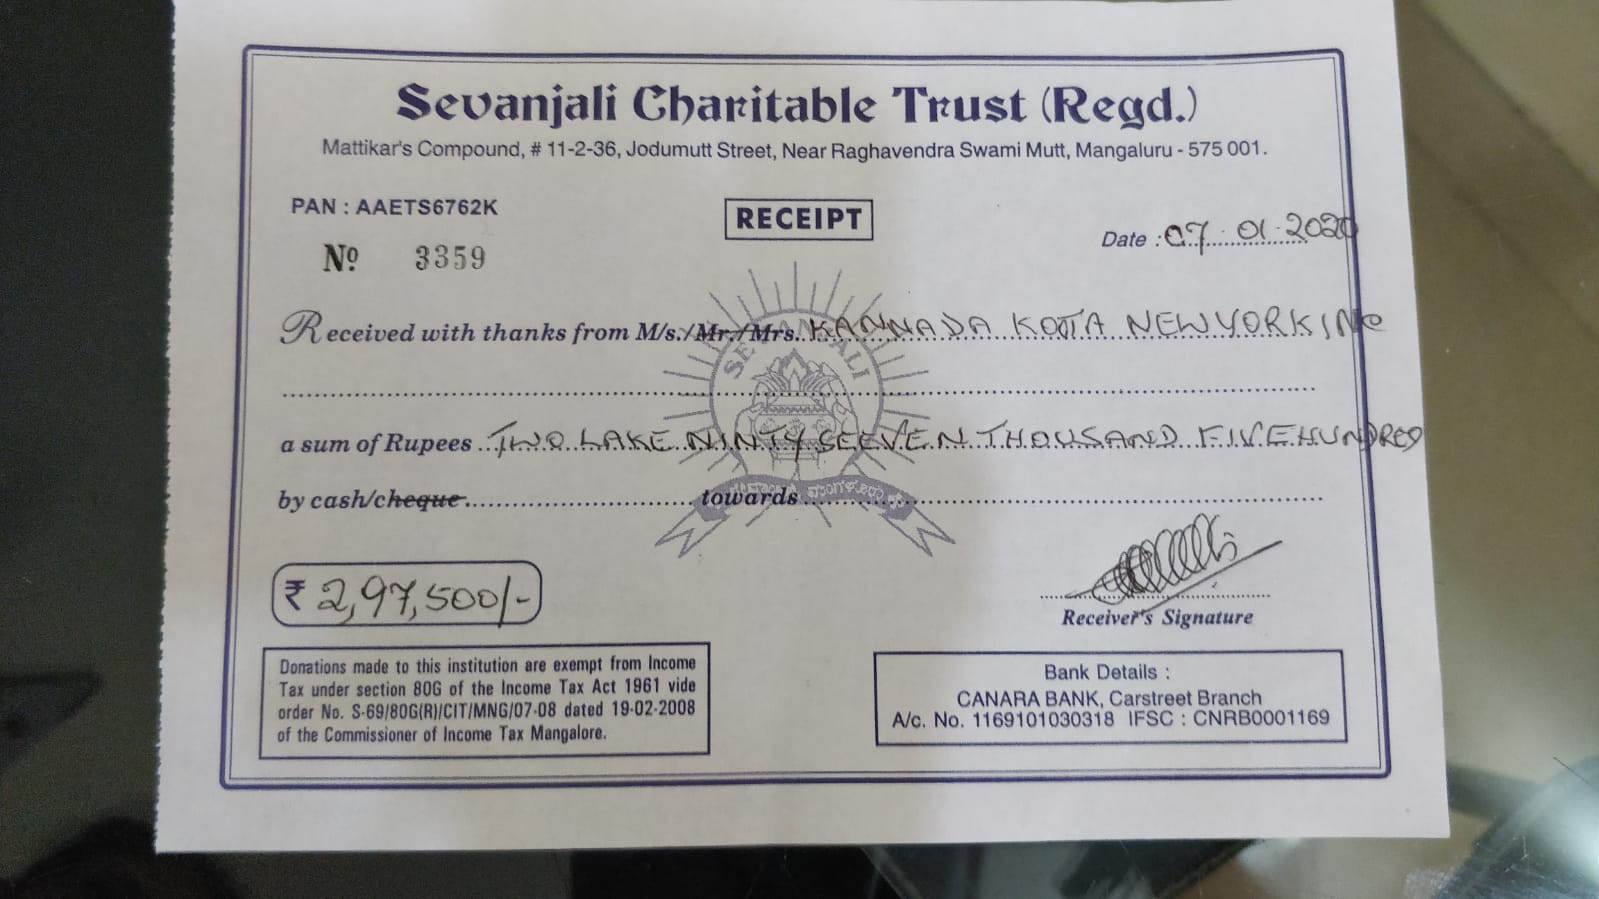 Sevanjali Charitable Trust (Regd.)
Mattikar's Compound, # 11-2-36, Jodumutt Street, Near Raghavendra Swami Mutt, Mangaluru - 575 001.
PAN : AAETS6762K
RECEIPT
Date : 07.01.2020
Nº 3359
Received with thanks from M/s./Mr./Mrs. KANNADA KOOTA NEWYORK INC
a sum of Rupees TWO LAKE NINTY SEEVEN THOUSAND FIVE HUNDRED
by cash/cheque towards
₹ 2,97,500/-
Receiver's Signature
Donations made to this institution are exempt from Income
Tax under section 80G of the Income Tax Act 1961 vide
order No. S-69/80G(R)/CIT/MNG/07-08 dated 19-02-2008
of the Commissioner of Income Tax Mangalore.
Bank Details :
CANARA BANK, Carstreet Branch
A/c. No. 1169101030318 IFSC : CNRB0001169
SEVANJALI